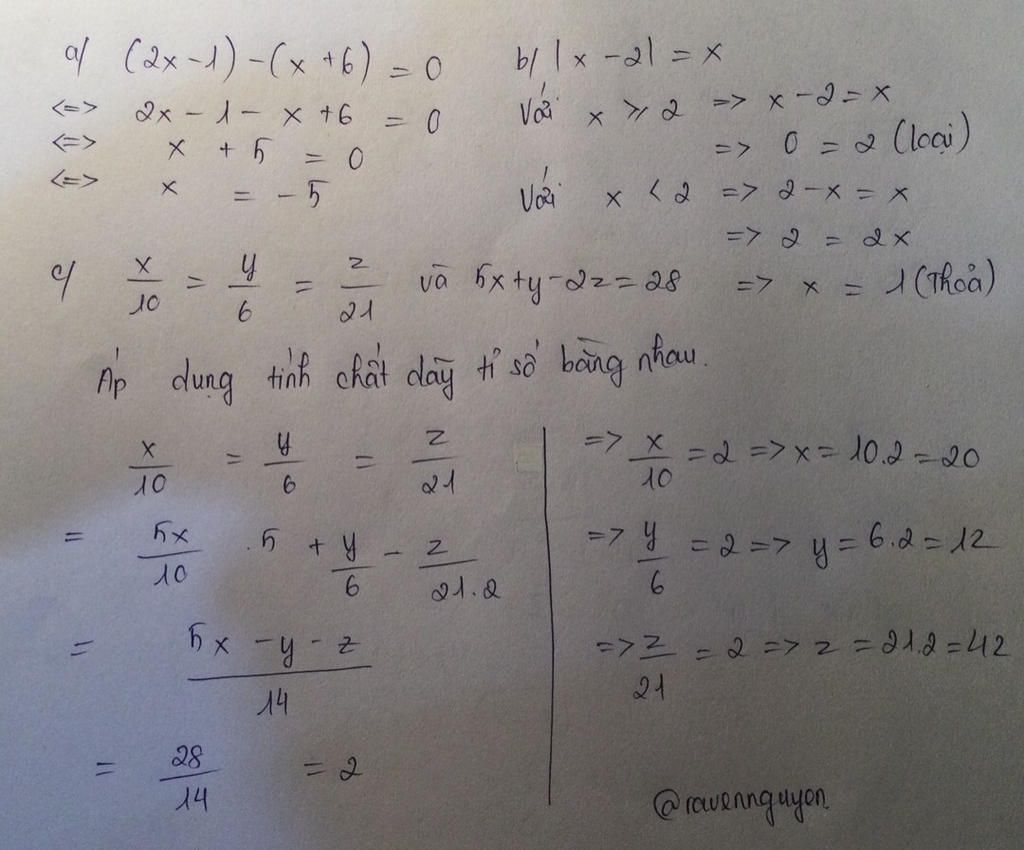 a/ (2x - 1) - (x + 6) = 0
<=> 2x - 1 - x + 6 = 0
<=> x + 5 = 0
<=> x = -5
b/ |x - 2| = x
Với x ≥ 2 => x - 2 = x
=> 0 = 2 (loại)
Với x < 2 => 2 - x = x
=> 2 = 2x
=> x = 1 (Thoả)
c/ x/10 = y/6 = z/21 và 5x + y - 2z = 28
Áp dụng tính chất dãy tỉ số bằng nhau.
x/10 = y/6 = z/21
= 5x/10 .5 + y/6 - z/21.2
= 5x - y - z/14
= 28/14 = 2
=> x/10 = 2 => x = 10.2 = 20
=> y/6 = 2 => y = 6.2 = 12
=> z/21 = 2 => z = 21.2 = 42
@ravennguyen